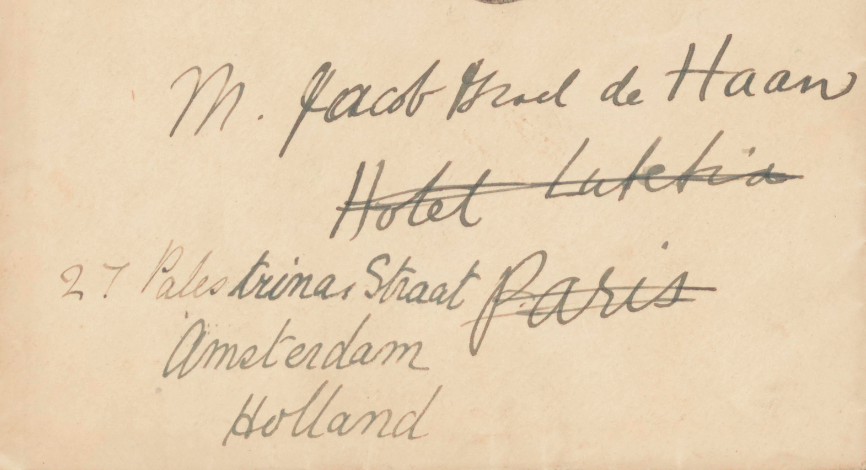 M. Jacob Israel de Haan
Hotel Lutetia
Paris
27 Palestrina Straat
Amsterdam
Holland